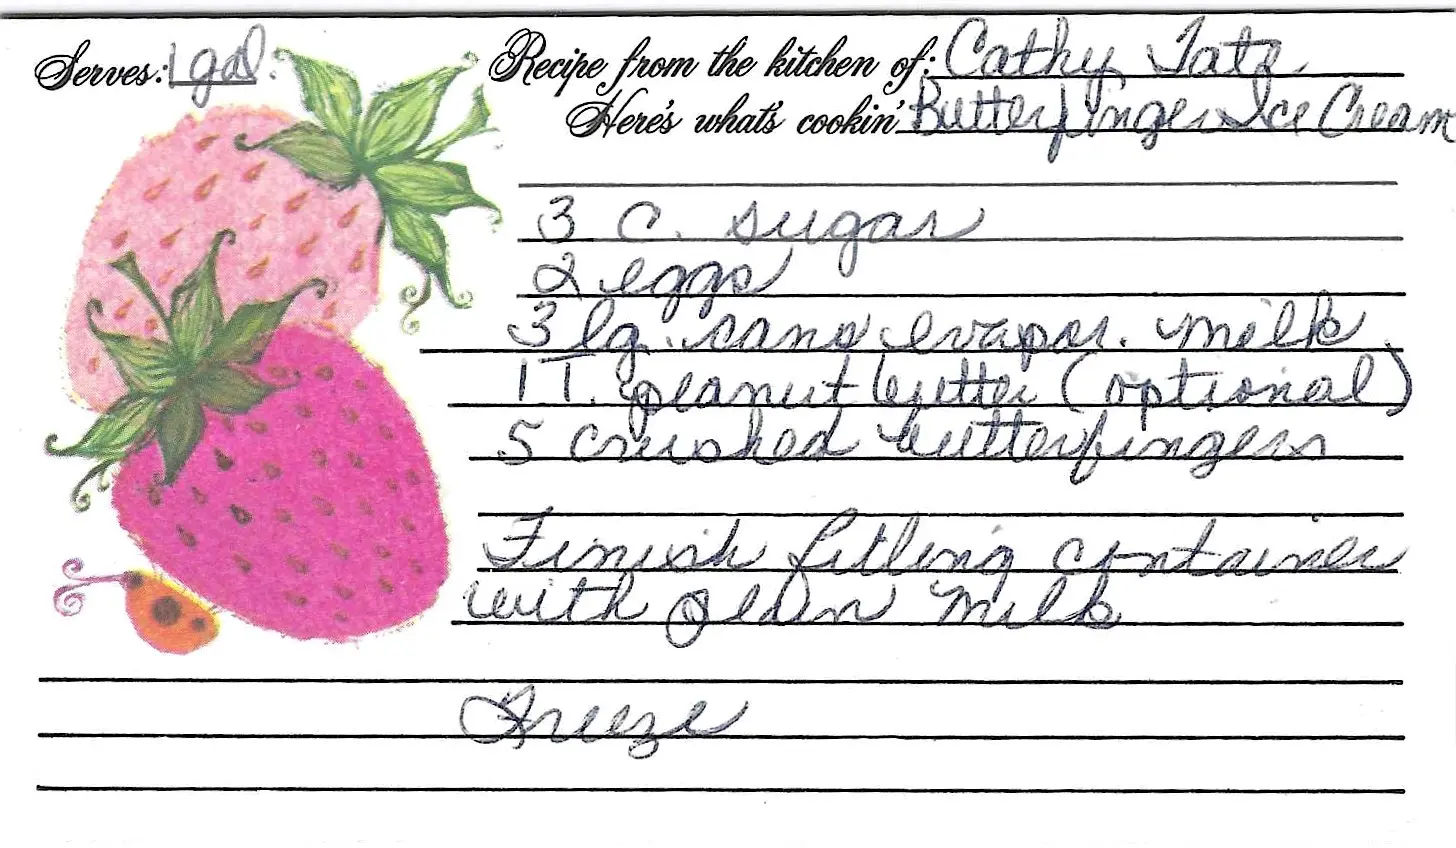 Serves: 1 gal.
Recipe from the kitchen of: Cathy Tate
Here's what's cookin' Butterfinger Ice Cream
3 C. sugar
2 eggs
3 lg. cans evapor. milk
1 T. peanut butter (optional)
5 crushed butterfingers
Finish filling container
with plain milk
Freeze